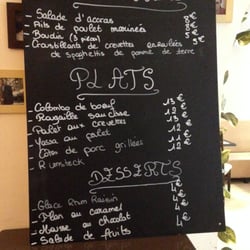 - Salade d'accras
- Pils de poulet marinées
- Boudin (3 pièces)
- Croustillants de crevettes enroulées
de spaghettis de pomme de terre
€
€
5 €
PLATS
- Colombo de bœuf 13 €
- Rougaille saucisse 12 €
- Poulet aux crevettes 13 €
- Yassa au poulet 11 €
- Côtes de porc grillées 12 €
- Rumsteck 12
DESSERTS
- Glace Rhum Raisin 4 €
- Flan au caramel 4 €
- Mousse au chocolat 4 €
- Salade de fruits 4 €